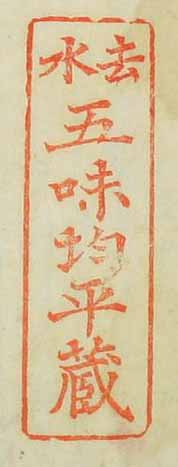 水去
五味均平蔵